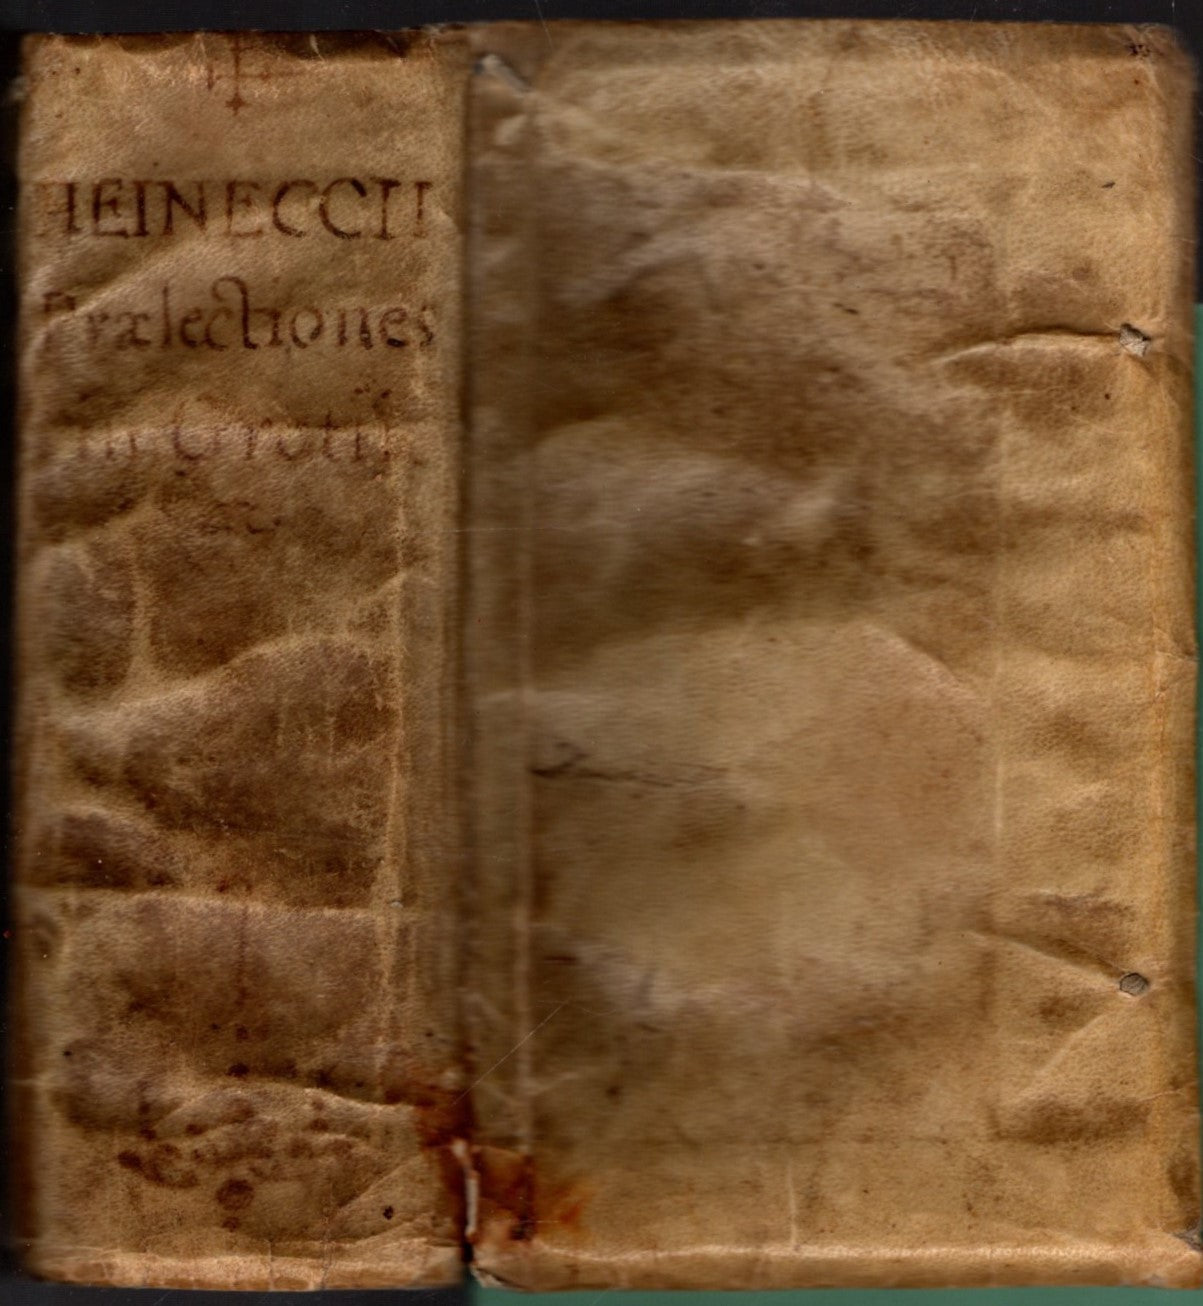 HEINECCII
Prælectiones
in Grotii